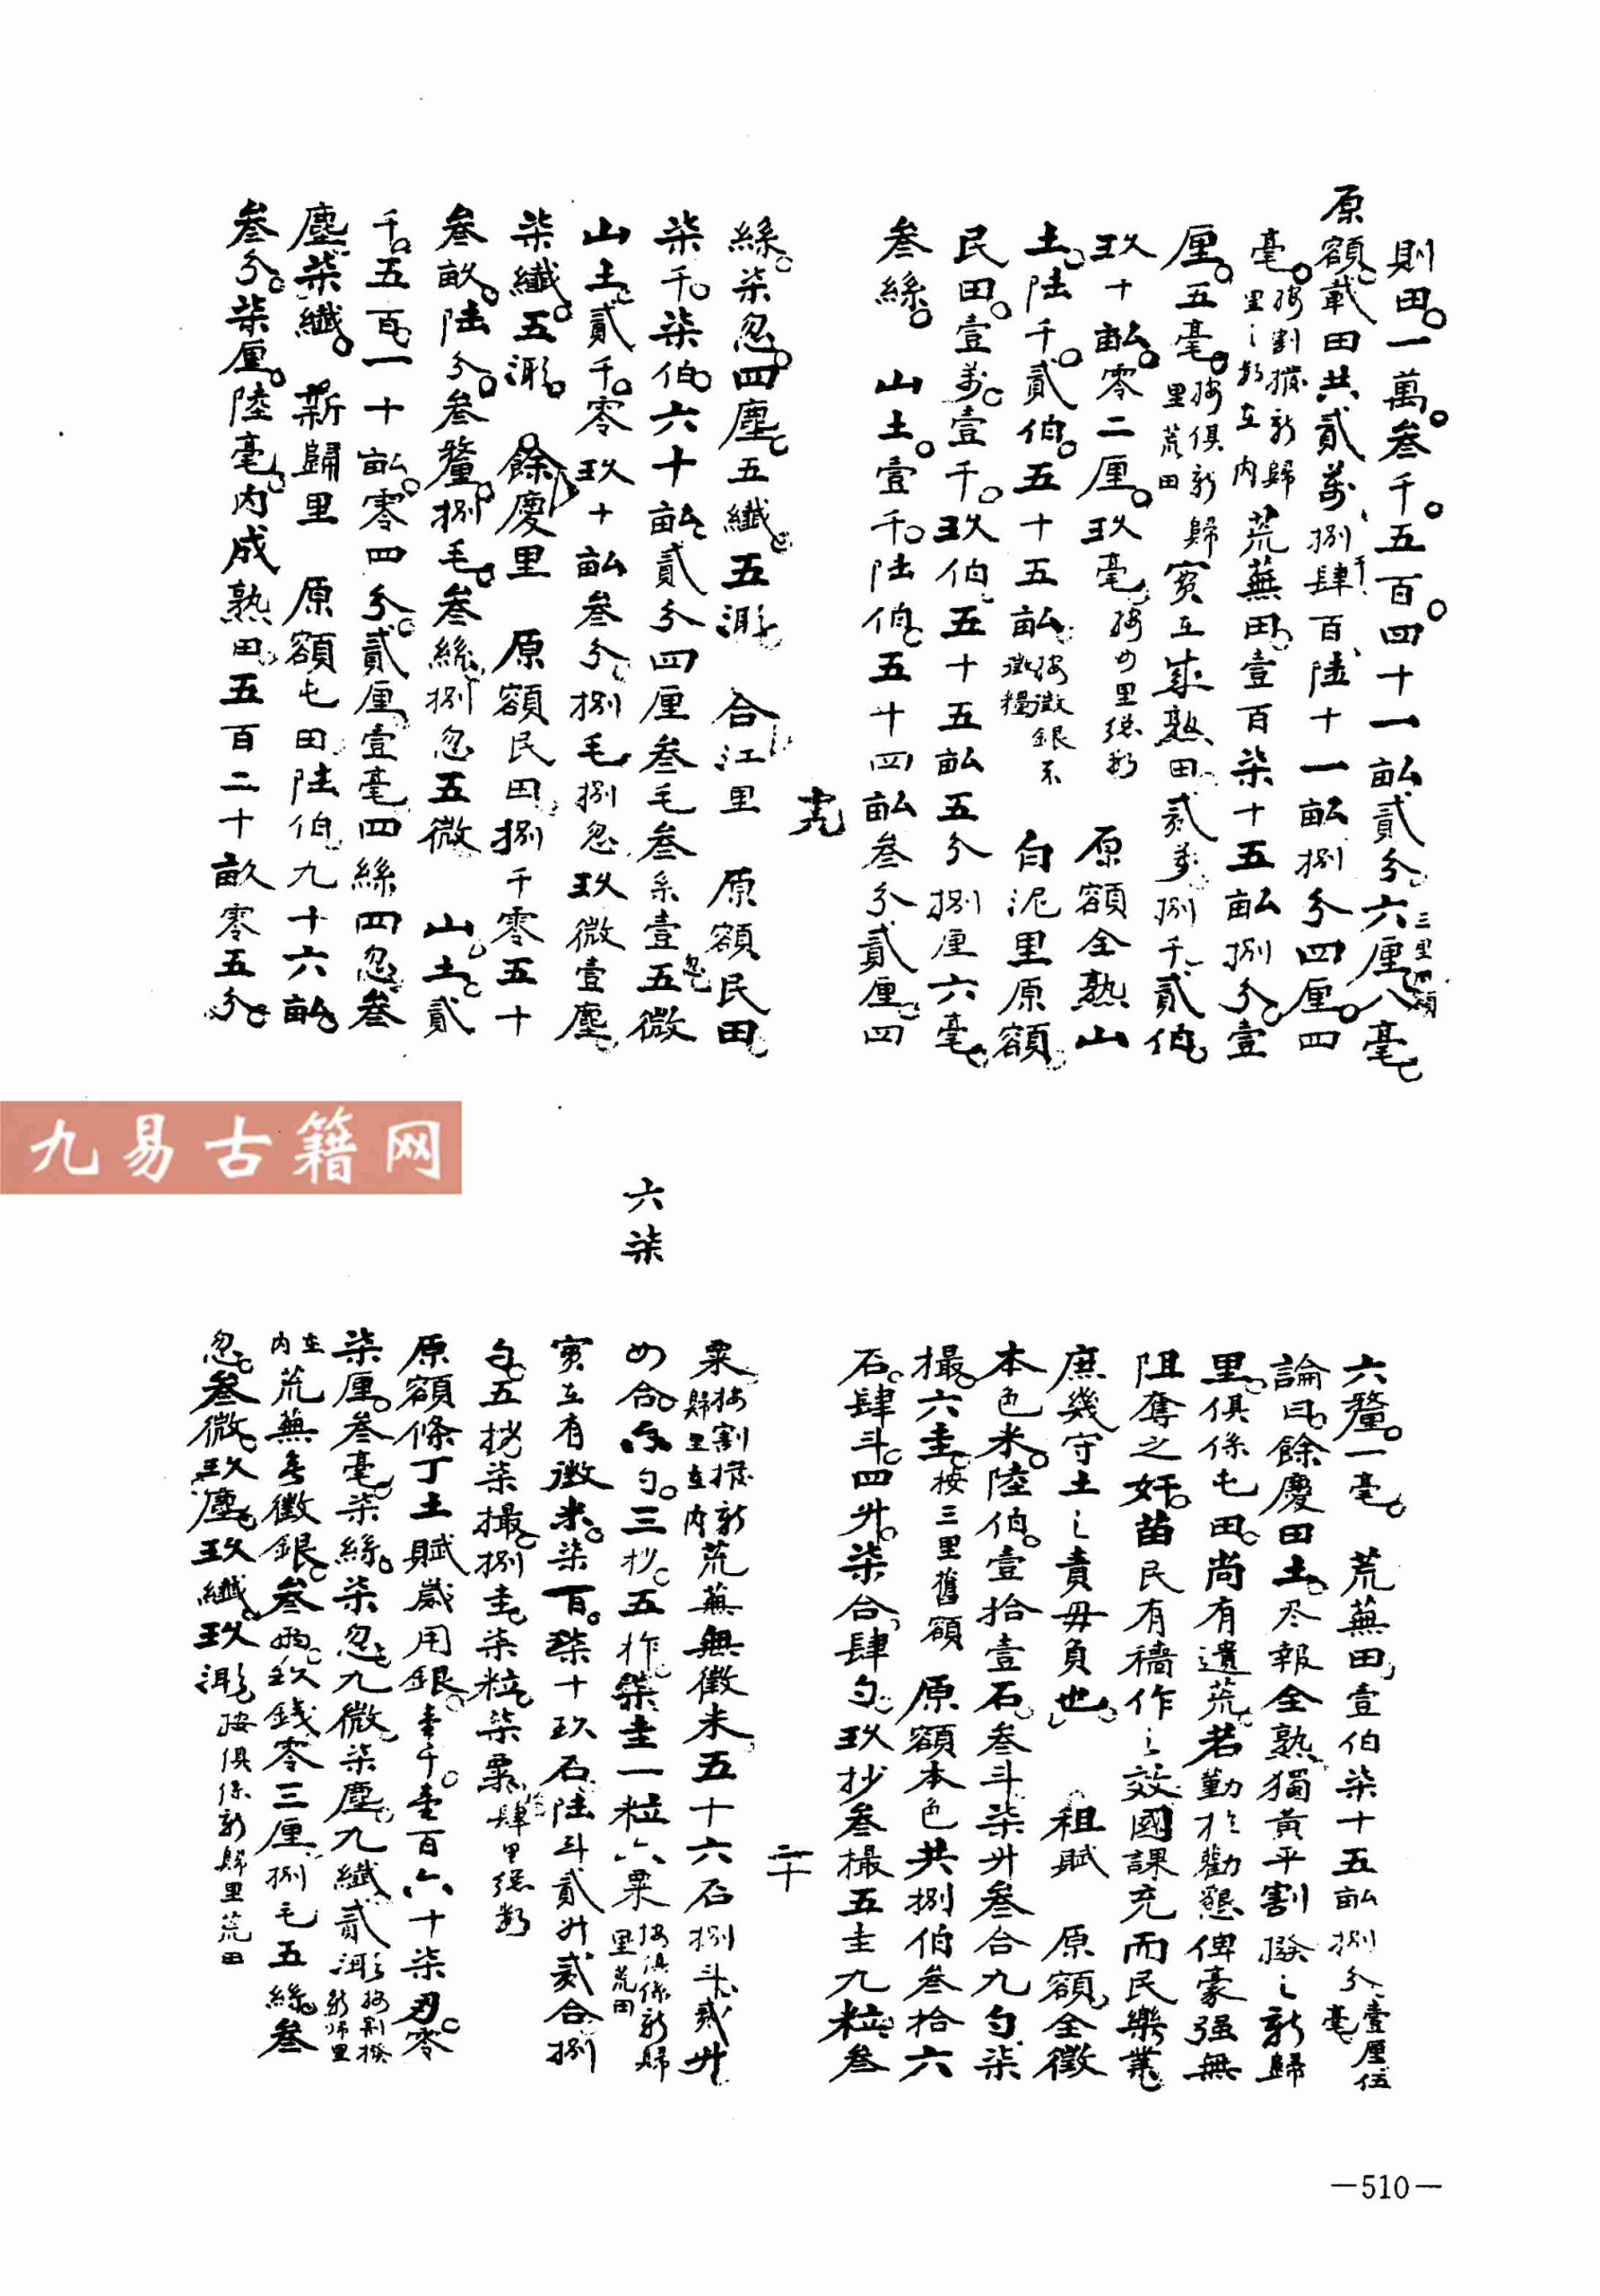 則田一萬叁千五百四十一畝貳分六厘八毫三里舊額
原額載田共貳萬捌千肆百陸十一畝捌分四厘四
毫按割撥新歸里之數在內荒蕪田壹百柒十五畝捌分壹
厘五毫按俱新歸里荒田實在成熟田貳萬捌千貳伯
玖十畝零二厘玖毫按四里總數 原額全熟山
土陸千貳伯五十五畝按徵銀不徵糧 白泥里原額
民田壹萬壹千玖伯五十五畝五分捌厘六毫
叁絲 山土壹千陸伯五十四畝叁分貳厘四
絲柒忽四塵五纖五渺 合江里 原額民田
柒千柒伯六十畝貳分四厘叁毛叁糸壹忽五微
山土貳千零玖十畝叁分捌毛捌忽玖微壹塵
柒纖五渺 餘慶里 原額民田捌千零五十
叁畝陸分叁釐捌毛叁絲捌忽五微 山土貳
千五百一十畝零四分貳厘壹毫四絲四忽叁
塵柒纖 新歸里 原額屯田陸伯九十六畝
叁分柒厘陸毫內成熟田五百二十畝零五分
六柒
六釐一毫 荒蕪田壹伯柒十五畝捌分壹厘伍毫
論曰餘慶田土尽報全熟獨黃平割撥之新歸
里俱係屯田尚有遺荒若勤於勸懇俾豪强無
阻奪之奸苗民有穡作之效國課充而民樂業
庶幾守土之責毋負也 租賦 原額全徵
本色米陸伯壹拾壹石叁斗柒升叁合九勺柒
撮六圭按三里舊額 原額本色共捌伯叁拾六
石肆斗四升柒合肆勺玖抄叁撮五圭九粒叁
二十
粟按割撥新歸里在內荒蕪無徵米五十六石捌斗貳升
四合勺三抄五作柒圭一粒六粟按俱係新歸里荒田
實在有徵米柒百柒十玖石陸斗貳升貳合捌
勺五抄柒撮捌圭柒粒柒粟肆里總數
原額條丁土賦歲用銀壹千壹百六十柒两零
柒厘叁毫柒絲柒忽九微柒塵九纖貳渺按割撥新歸里
在內荒蕪無徵銀叁兩玖錢零三厘捌毛五絲叁
忽叁微玖塵玖纖玖渺按俱係新歸里荒田
—510—
九易古籍网